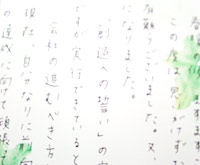 この度は思いがけず、
有難うございました。又、
になりました。
「創造への誓い」の
ですが実行できていると
会社の進むべき方
現社、自分なりに
の達成に向けて頑張